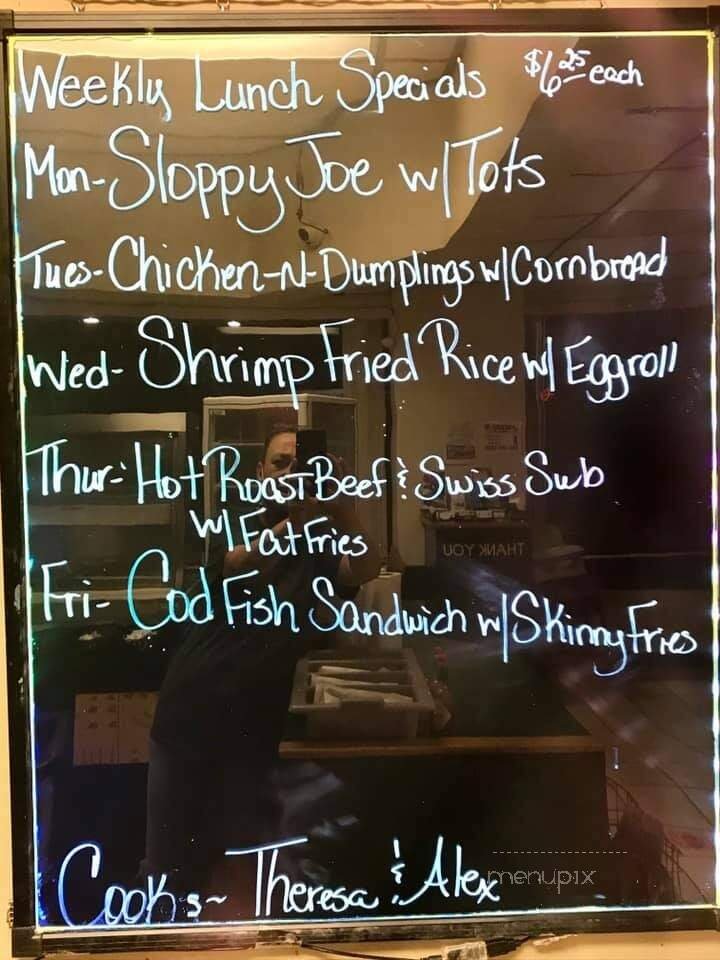 Weekly Lunch Specials $6.25 each
Mon-Sloppy Joe w/Tots
Tues-Chicken-N-Dumplings w/Cornbread
Wed- Shrimp Fried Rice w/ Eggroll
Thur- Hot Roast Beef & Swiss Sub
w/ Fat Fries
THANK YOU
Fri- Cod Fish Sandwich w/Skinny Fries
Cooks~ Theresa & Alex
menupix